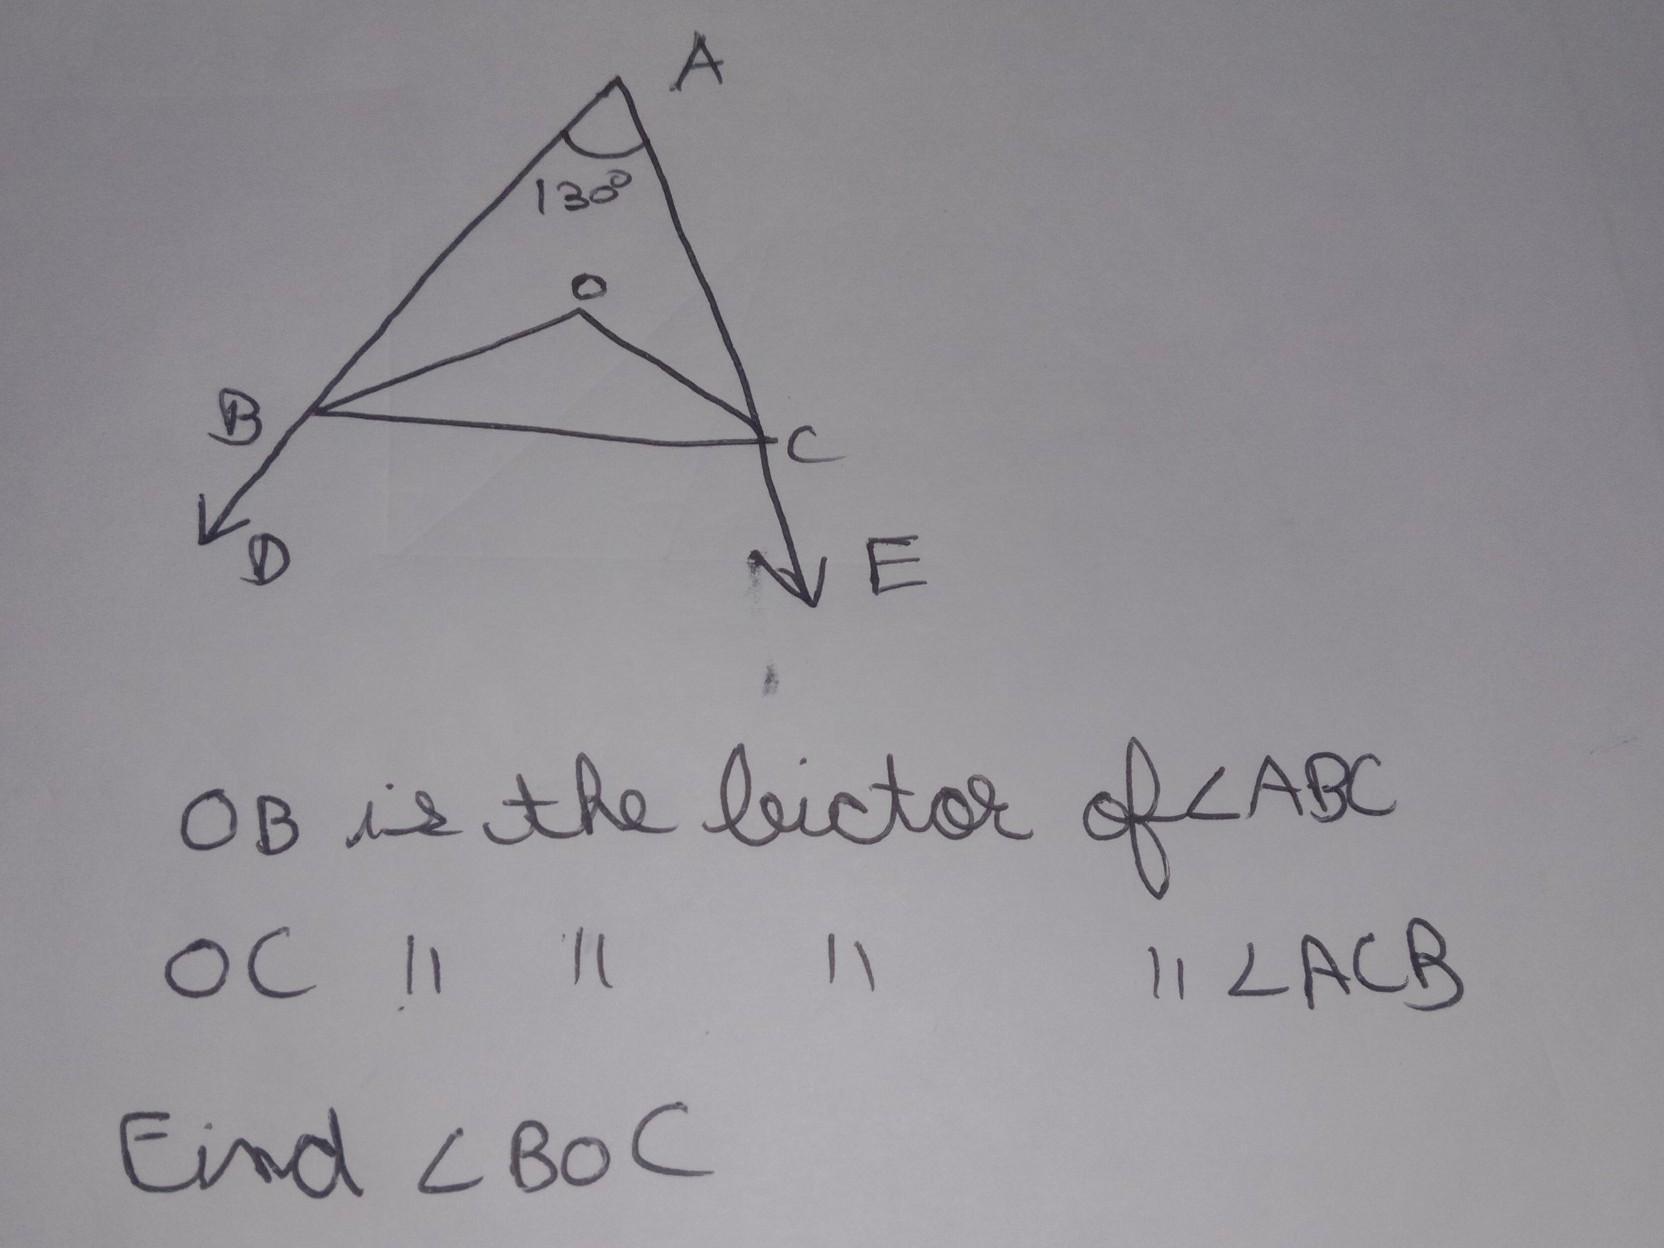 A
130°
O
B
C
D
E
OB is the bictor of ∠ABC
OC 〃 〃 〃 〃 ∠ACB
Find ∠BOC